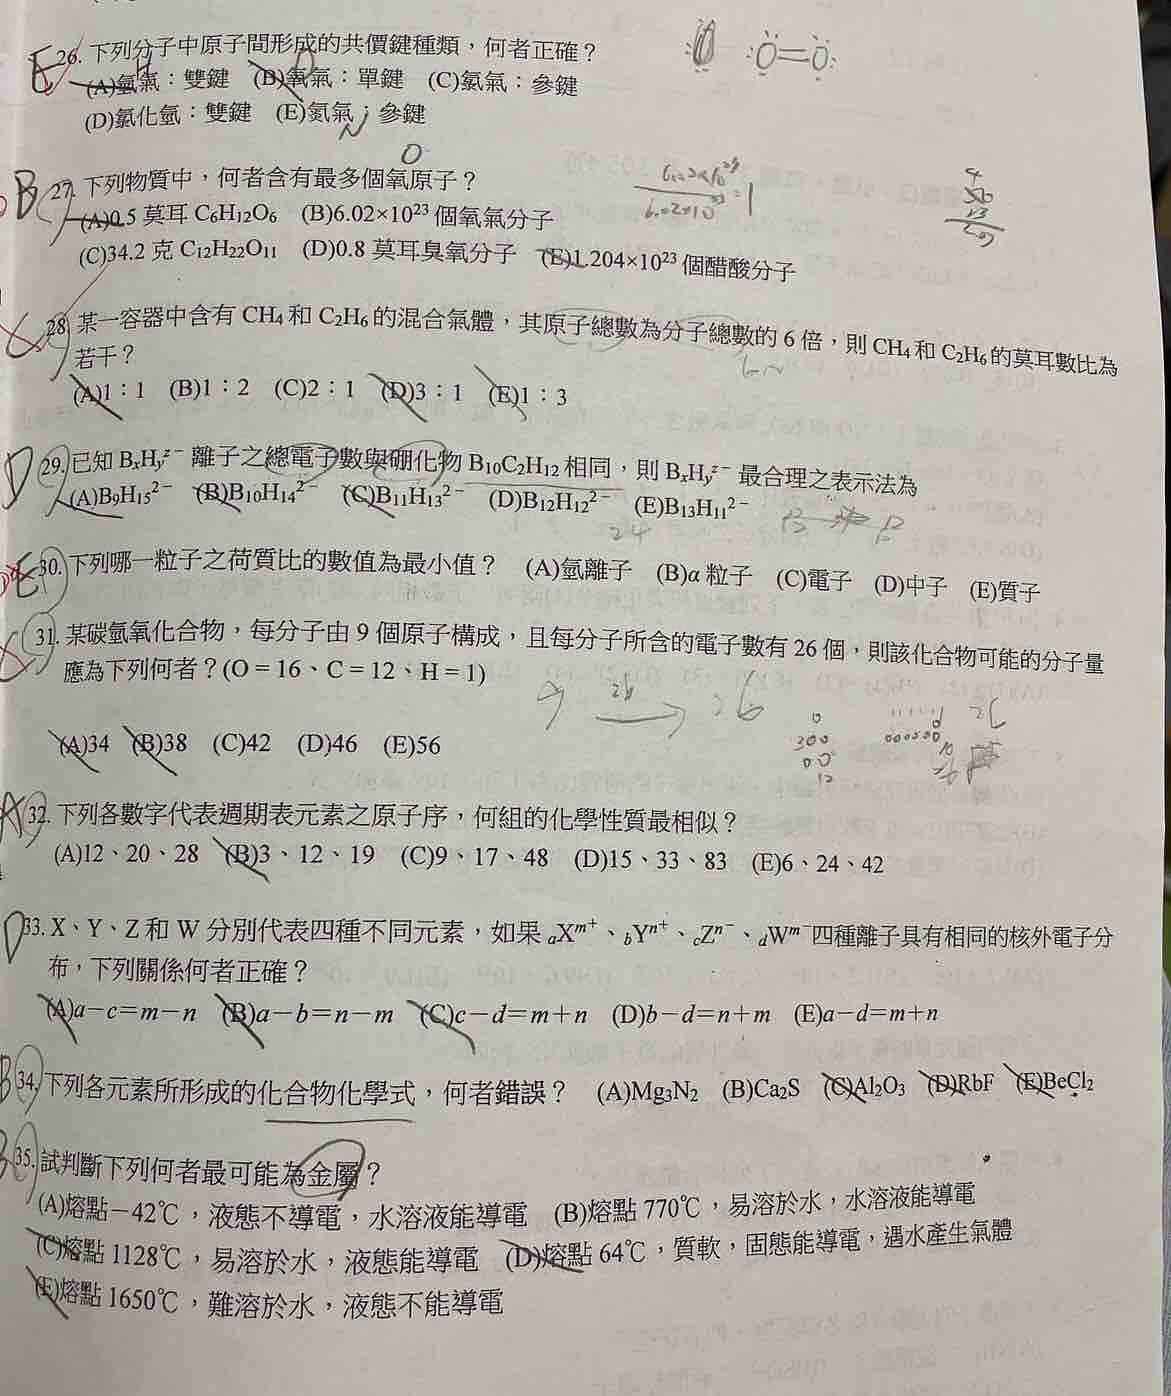 E 26. 下列分子中原子間形成的共價鍵種類，何者正確？
(A)氫氣：雙鍵 (B)氧氣：單鍵 (C)氯氣：參鍵
(D)氯化氫：雙鍵 (E)氮氣：參鍵
N
O
B 27. 下列物質中，何者含有最多個氧原子？
(A)0.5 莫耳 C₆H₁₂O₆ (B)6.02×10²³ 個氧氣分子
(C)34.2 克 C₁₂H₂₂O₁₁ (D)0.8 莫耳臭氧分子 (E)1.204×10²³ 個醋酸分子
28. 某一容器中含有 CH₄ 和 C₂H₆ 的混合氣體，其原子總數為分子總數的 6 倍，則 CH₄ 和 C₂H₆ 的莫耳數比為
若干？
(A)1：1 (B)1：2 (C)2：1 (D)3：1 (E)1：3
D 29. 已知 BₓHᵧᶻ⁻ 離子之總電子數與硼化物 B₁₀C₂H₁₂ 相同，則 BₓHᵧᶻ⁻ 最合理之表示法為
(A)B₉H₁₅²⁻ (B)B₁₀H₁₄²⁻ (C)B₁₁H₁₃²⁻ (D)B₁₂H₁₂²⁻ (E)B₁₃H₁₁²⁻
24
E 30. 下列哪一粒子之荷質比的數值為最小值？ (A)氫離子 (B)α 粒子 (C)電子 (D)中子 (E)質子
31. 某碳氫氧化合物，每分子由 9 個原子構成，且每分子所含的電子數有 26 個，則該化合物可能的分子量
應為下列何者？(O = 16、C = 12、H = 1)
9 26 26
(A)34 (B)38 (C)42 (D)46 (E)56
A 32. 下列各數字代表週期表元素之原子序，何組的化學性質最相似？
(A)12、20、28 (B)3、12、19 (C)9、17、48 (D)15、33、83 (E)6、24、42
D 33. X、Y、Z 和 W 分別代表四種不同元素，如果 ₐXᵐ⁺、bYⁿ⁺、cZⁿ⁻、dWᵐ⁻四種離子具有相同的核外電子分
布，下列關係何者正確？
(A)a－c＝m－n (B)a－b＝n－m (C)c－d＝m＋n (D)b－d＝n＋m (E)a－d＝m＋n
B 34. 下列各元素所形成的化合物化學式，何者錯誤？ (A)Mg₃N₂ (B)Ca₂S (C)Al₂O₃ (D)RbF (E)BeCl₂
35. 試判斷下列何者最可能為金屬？
(A)熔點－42℃，液態不導電，水溶液能導電 (B)熔點 770℃，易溶於水，水溶液能導電
(C)熔點 1128℃，易溶於水，液態能導電 (D)熔點 64℃，質軟，固態能導電，遇水產生氣體
(E)熔點 1650℃，難溶於水，液態不能導電